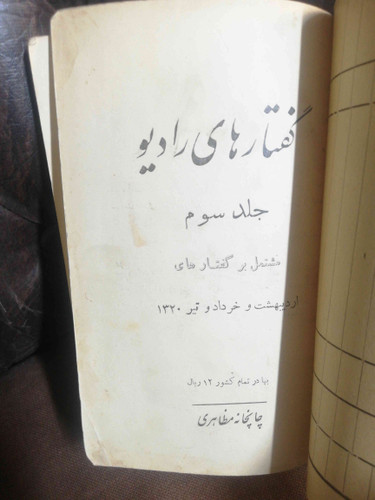 گفتارهای رادیو
جلد سوم
مشتمل بر گفتارهای
اردیبهشت و خرداد و تیر ۱۳۲۰
بها در تمام کشور ۱۲ ریال
چاپخانه مظاهری